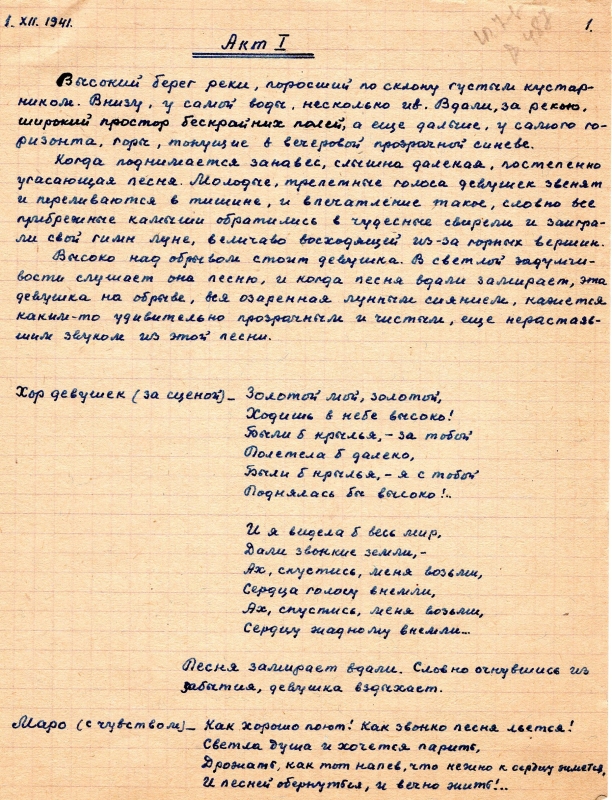 1. XII. 1941.
1.
Акт I
Высокий берег реки, поросший по склону густым кустар-
ником. Внизу, у самой воды, несколько ив. Вдали, за рекою,
широкий простор бескрайних полей, а еще дальше, у самого го-
ризонта, горы, тонущие в вечеровой прозрачной синеве.
Когда поднимается занавес, слышна далекая, постепенно
угасающая песня. Молодые, трепетные голоса девушек звенят
и переливаются в тишине, и впечатление такое, словно все
прибрежные камыши обратились в чудесные свирели и заигра-
ли свой гимн луне, величаво восходящей из-за горных вершин.
Высоко над обрывом стоит девушка. В светлой задумчи-
вости слушает она песню, и когда песня вдали замирает, эта
девушка на обрыве, вся озаренная лунным сиянием, кажется
каким-то удивительно прозрачным и чистым, еще нерастаяв-
шим звуком из этой песни.
Хор девушек (за сценой) – Золотой мой, золотой,
Ходишь в небе высоко!
Были б крылья, – за тобой
Полетела б далеко,
Были б крылья, – я с тобой
Поднялась бы высоко!..
И я видела б весь мир,
Дали звонкие земли, –
Ах, спустись, меня возьми,
Сердца голосу внемли,
Ах, спустись, меня возьми,
Сердцу жадному внемли...
Песня замирает вдали. Словно очнувшись из
забытия, девушка вздыхает.
Маро (с чувством) – Как хорошо поют! Как звонко песня льется!
Светла душа и хочется парить,
Дрожать, как тот напев, что нежно к сердцу жмется,
И песней обернуться, и вечно жить!..